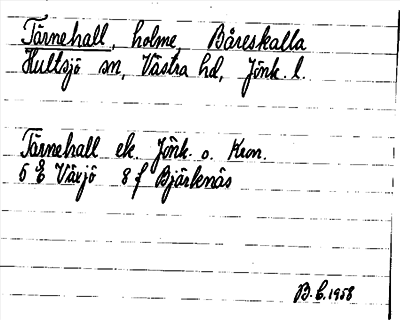 Tärnehall, holme, Båreskalla
Hultsjö sn, Västra hd, Jönk. l.
Tärnehall ek. Jönk. o. Kron.
5 E Växjö 8 f Bjärknäs
B.E. 1958